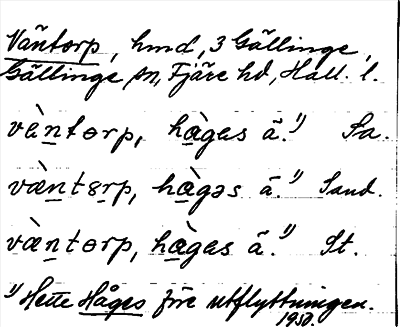 Väntorp, hmd, 3 Gällinge,
Gällinge sn, Fjäre hd, Hall. l.
vàntorp, hàgas ä.¹⁾ Sa.
vàntɛrp, hàgəs ä.¹⁾ Sand.
vàntorp, hàgas ä.¹⁾ St.
¹⁾ Hette Håges före utflyttningen.
1950.